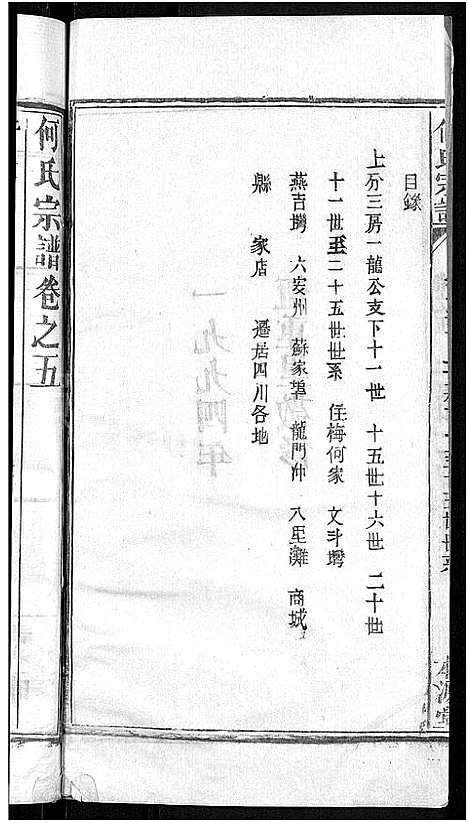 何氏宗譜
目錄
上分三房一龍公支下十一世 十五世十六世 二十世
十一世至二十五世世系 任梅何家 文斗塆
燕吉塆 六安州 蘇家埠 龍門冲 八里灘 商城
縣 家店 遷居四川各地
一九九四年
何氏宗譜卷之五